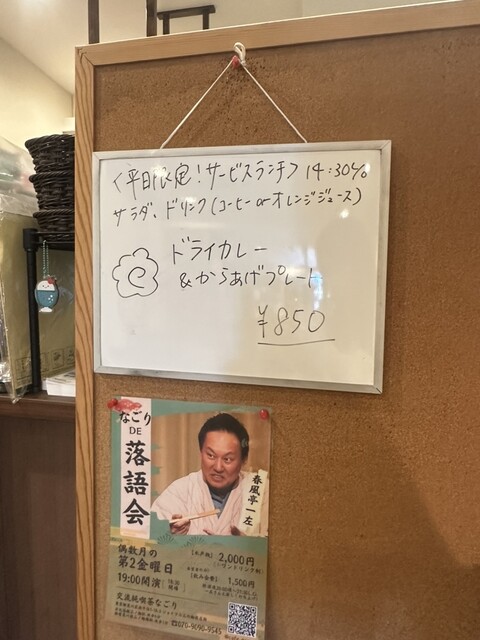 <平日限定!サービスランチ> 14:30%
サラダ、ドリンク(コーヒー or オレンジジュース)
ドライカレー
&からあげプレート
¥850
なごり
DE
落語会
春風亭一左
偶数月の
第2金曜日
19:00開演
2,000円
1,500円
交流純喫茶なごり
070-9090-9545